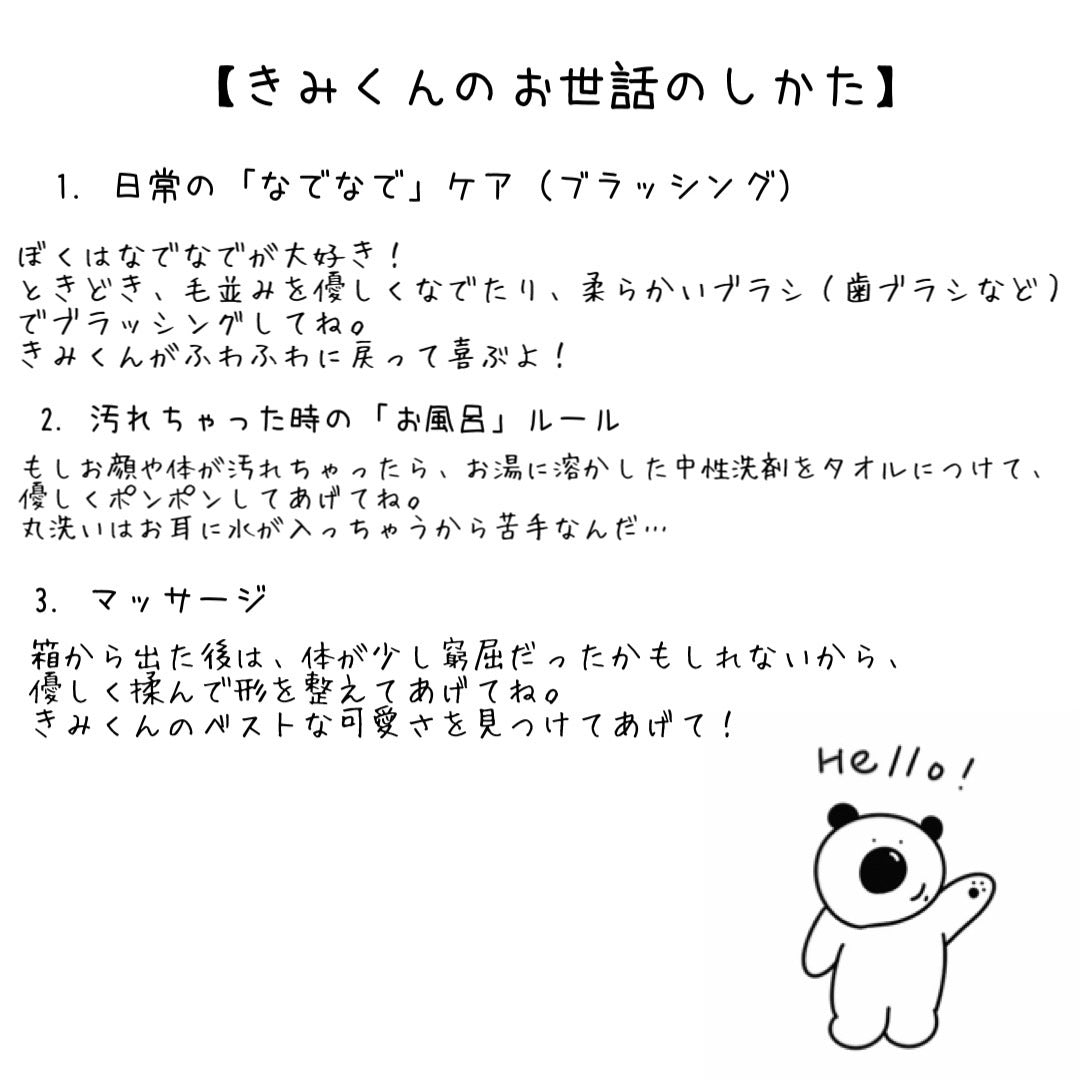 【きみくんのお世話のしかた】
1. 日常の「なでなで」ケア（ブラッシング）
ぼくはなでなでが大好き！
ときどき、毛並みを優しくなでたり、柔らかいブラシ（歯ブラシなど）
でブラッシングしてね。
きみくんがふわふわに戻って喜ぶよ！
2. 汚れちゃった時の「お風呂」ルール
もしお顔や体が汚れちゃったら、お湯に溶かした中性洗剤をタオルにつけて、
優しくポンポンしてあげてね。
丸洗いはお耳に水が入っちゃうから苦手なんだ…
3. マッサージ
箱から出た後は、体が少し窮屈だったかもしれないから、
優しく揉んで形を整えてあげてね。
きみくんのベストな可愛さを見つけてあげて！
Hello!